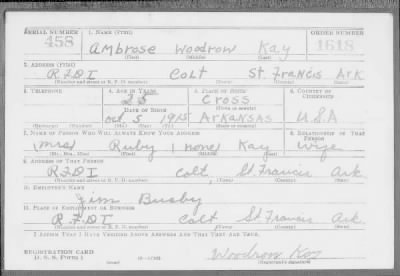 SERIAL NUMBER 1. NAME (Print) ORDER NUMBER
458 Ambrose Woodrow Kay 1618
(First) (Middle) (Last)
2. ADDRESS (Print)
RFDI Colt St. Francis Ark
(Number and street or R. F. D. number) (Town) (County) (State)
3. TELEPHONE 4. AGE IN YEARS 5. PLACE OF BIRTH 6. COUNTRY OF CITIZENSHIP
25 Cross
DATE OF BIRTH (Town or county)
Oct 5 1915 Arkansas U.S.A
(Exchange) (Number) (Mo.) (Day) (Yr.) (State or country)
7. NAME OF PERSON WHO WILL ALWAYS KNOW YOUR ADDRESS 8. RELATIONSHIP OF THAT PERSON
Mrs Ruby (none) Kay Wife
(Mr., Mrs., Miss) (First) (Middle) (Last)
9. ADDRESS OF THAT PERSON
RFDI Colt, St. Francis Ark.
(Number and street or R. F. D. number) (Town) (County) (State)
10. EMPLOYER'S NAME
Jim Busby
11. PLACE OF EMPLOYMENT OR BUSINESS
RFDI Colt St. Francis Ark.
(Number and street or R. F. D. number) (Town) (County) (State)
I AFFIRM THAT I HAVE VERIFIED ABOVE ANSWERS AND THAT THEY ARE TRUE.
REGISTRATION CARD Woodrow Kay
D. S. S. Form 1 (Registrant's signature)